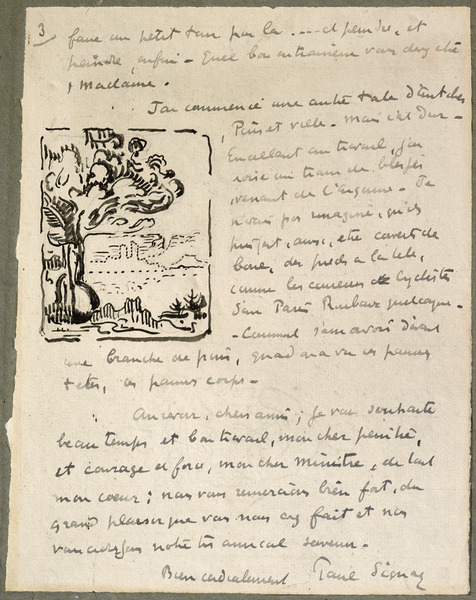 3
faire un petit tour par là .... et peindre, et
peindre, enfin - Quel bon entrainem
Madame.
J'ai commencé une autre toile d'Antibes
Pins et ville. Mais c'est dur -
En allant au travail, j'ai
croisé un train de blessés
venant de l'Argonne - Je
n'avais pas imaginé, qu'ils
aussi, être couverts de
boue, des pieds à la tête,
comme les coureurs cyclistes
d'un Paris Roubaix quelconque -
- Comment s'émouvoir devant
une branche de pin, quand on a vu ces pauvres
têtes, ces pauvres corps -
Au revoir, chers amis ; je vous souhaite
beau temps et bon travail, mon cher peintre,
et courage et force, mon cher ministre, de tout
mon coeur ; nous vous remercions bien fort, du
grand plaisir que vous nous avez fait et nous
vous notre très amical souvenir -
Bien cordialement Paul Signac